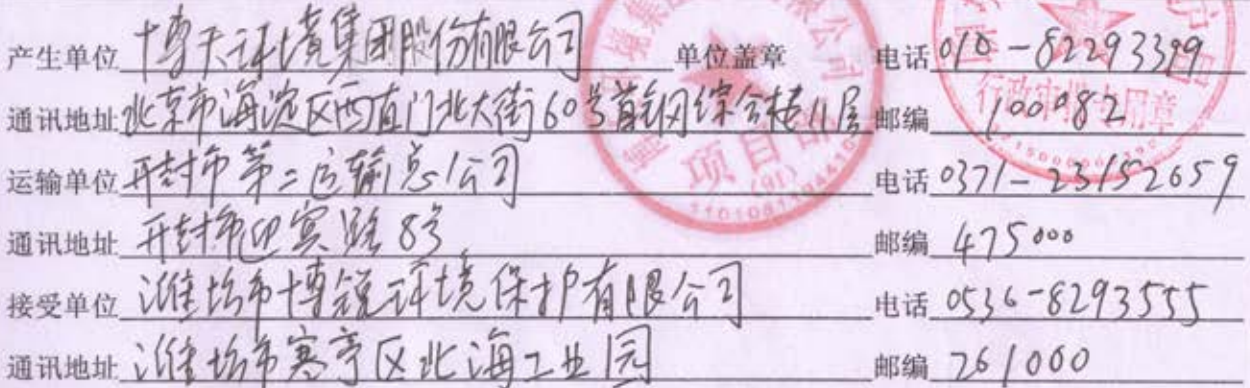 产生单位 博天环境集团股份有限公司 单位盖章 电话 010-82293399
通讯地址 北京市海淀区西直门北大街60号首钢综合楼11层 邮编 100082
运输单位 开封市第二运输总公司 电话 0371-23152659
通讯地址 开封市迎宾路83号 邮编 475000
接受单位 潍坊市博锐环境保护有限公司 电话 0536-8293555
通讯地址 潍坊市寒亭区北海工业园 邮编 261000
项目部
(91)
行政审批专用章